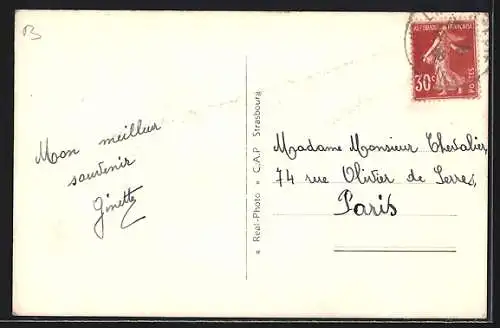 B
RÉPUBLIQUE FRANÇAISE
30c
POSTES
Mon meilleur
souvenir
Ginette
Real-Photo C.A.P Strasbourg
Madame Monsieur Chevalier,
74 rue Olivier de Serres,
Paris